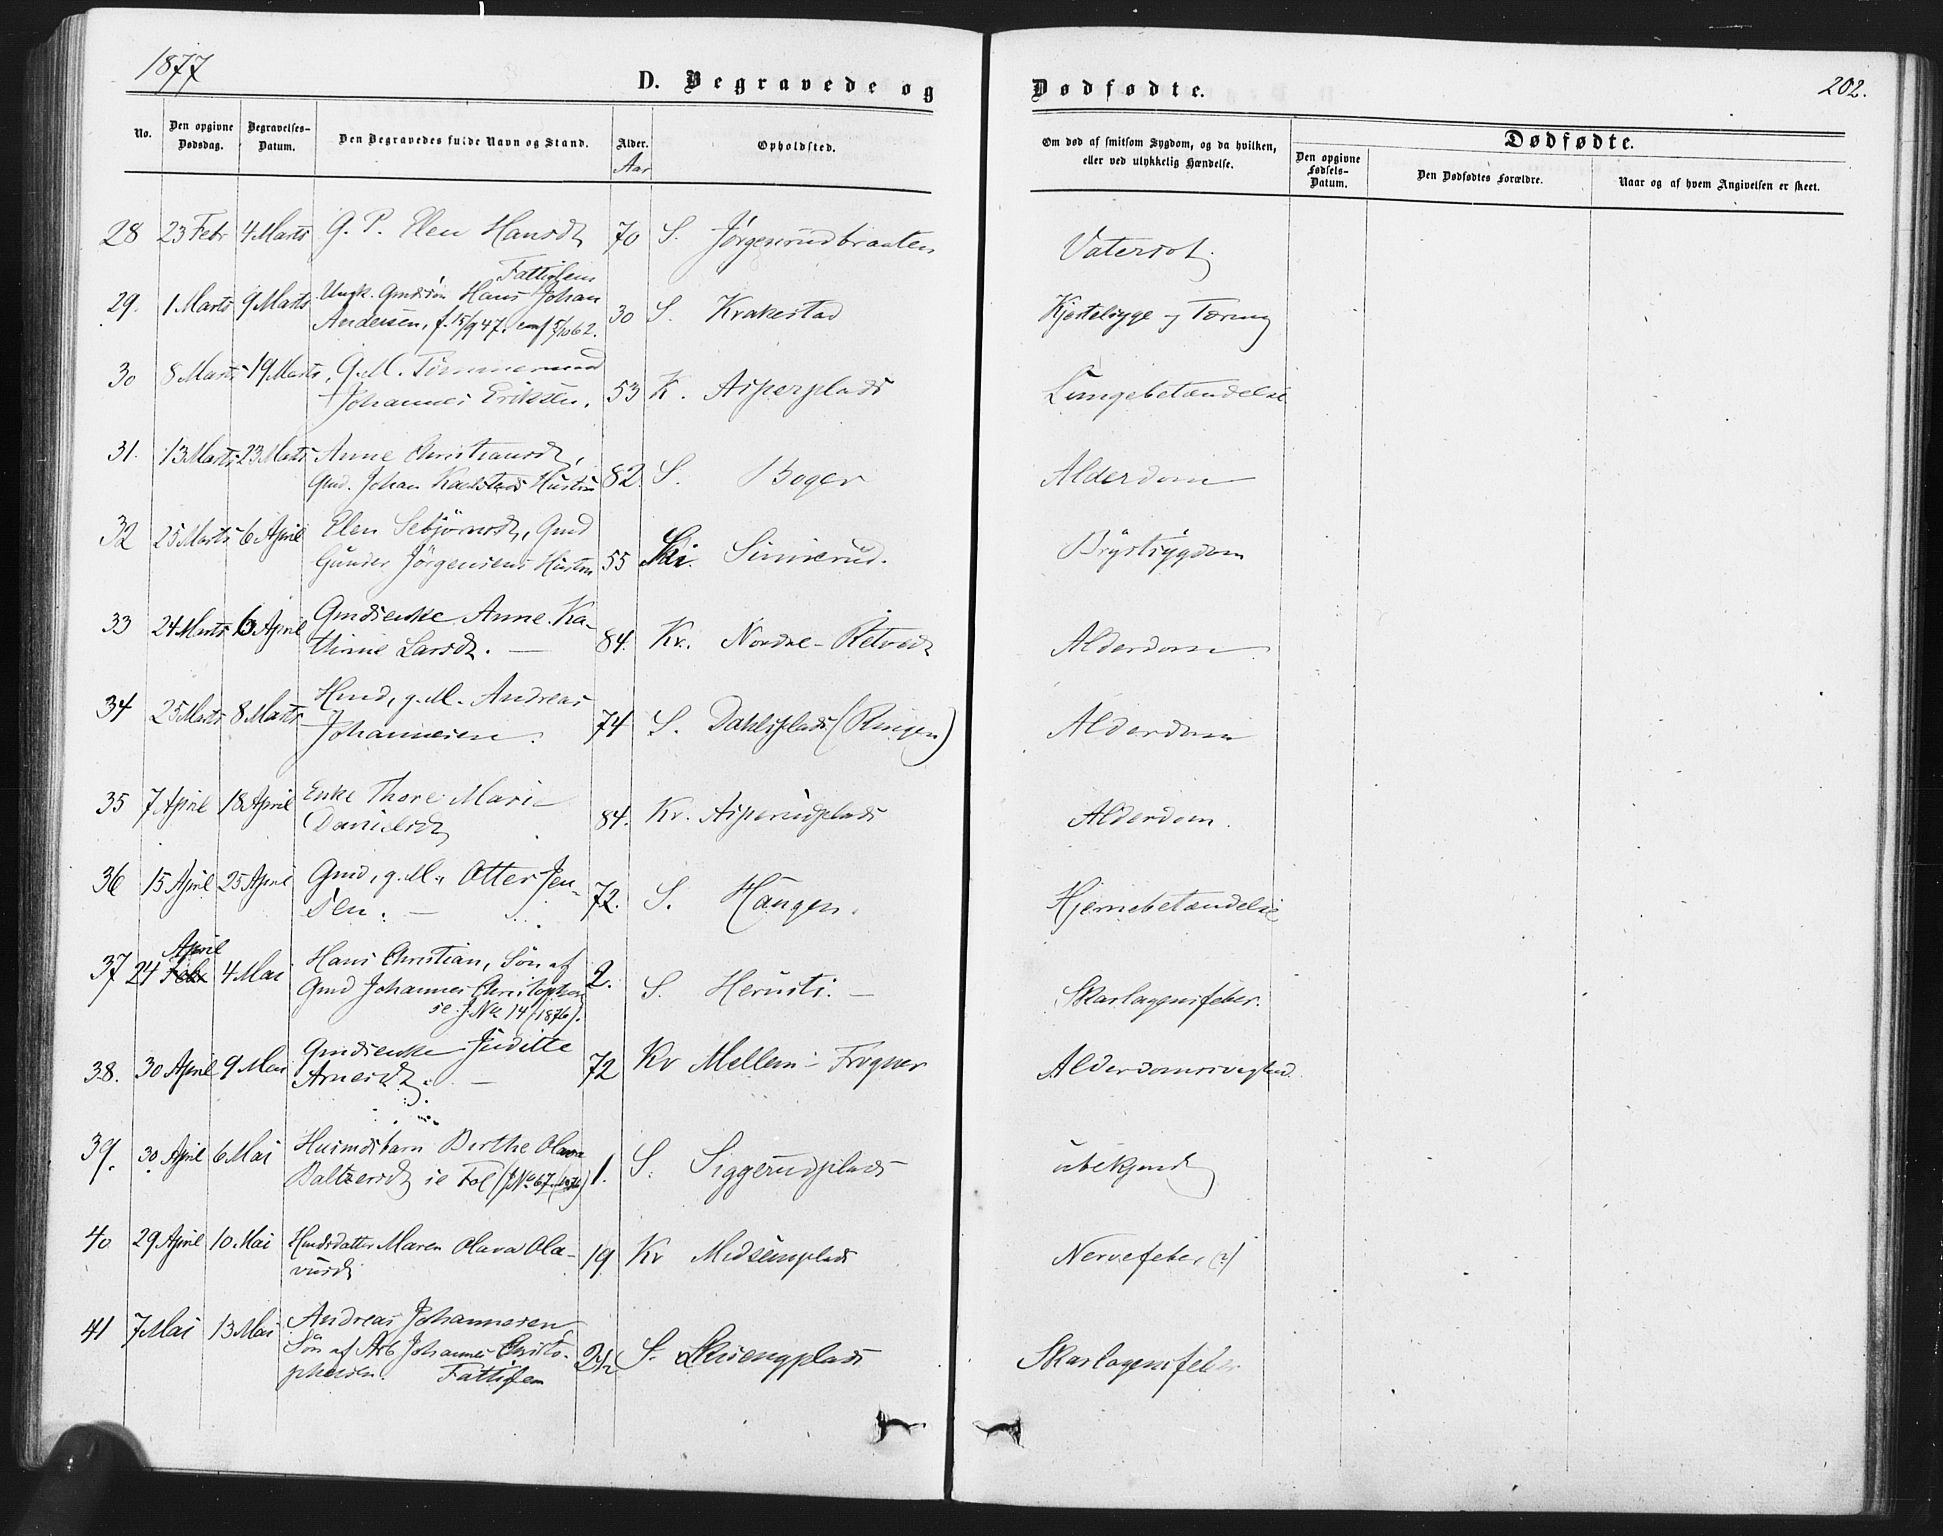 1877
D. Begravede og Dødfødte.
202.
No. Den opgivne Dødsdag. Begravelses-Datum. Den Begravedes fulde Navn og Stand. Alder. Aar Opholdsted. Om død af smitsom Sygdom, og da hvilken, eller ved ulykkelig Hændelse. Dødfødte.
Den opgivne Fødsels-Datum. Den Dødfødtes Forældre. Naar og af hvem Angivelsen er skeet.
28 23 Febr 4 Marts G. P. Elen Hansdt 70 S. Jörgenrudbraaten Vatersot
Fattiglem
29. 1 Marts 9 Marts Ungk. Gmdssön Hans Johan 30 S. Krakestad
Andersen, f. 15/9 47. conf 5/10 62.
30 8 Marts 19 Marts G. M. Tömmermand
Johannes Eriksen. 53 K. Asperplads Lungebetændelse
31. 13 Marts 23 Marts Anne Christiansdt,
Gmd. Johan Hustru 82 S. Boger Alderdom
32 25 Marts 6 April Elen Sebjörnsdt, Gmd
Gunder Jörgensens Hustru 55 Ski. Simierud. Brystsygdom
33 24 Marts 6 April Gmdsenke Anne Ka-
thrine Larsdt. — 84. Kr. Nordre-Retvedt Alderdom
34 25 Marts 8 Marts Hmd, g. M. Andreas
Johannesen. 74 S. Dahlsplads (Ringen) Alderdom
35 7 April 18 April Enke Thore Marie
Danielsdt 84. Kr. Asperudplads Alderdom.
36 15 April 25 April Gmd, g. M., Otter Jen-
sen. — 72. S. Haugen. Hjernebetændelse
April
37 24 Febr 4 Mai Hans Christian, Sön af 2.
Gmd Johannes Christophers S. Skarlagensfeber.
se J. No 14 (1876).
38. 30 April 9 Mai Gmdsenke Juditte
Arnesdt. — 72 Kv Mellem-Frogner
39. 30 April 6 Mai Husmdsbarn Berthe Olava
Baltzersdt 1. S. Siggerudplads ubekjendt
40 29 April 10 Mai Hmdsdatter Maren Olava Ola-
vusdt 19 Kr Midsemplads Nervefeber (?)
41 7 Mai 13 Mai Andreas Johannesen
Sön af Arb Johannes Christo-
phersen. Fattiglem 2 1/2 S. Skuengplads Skarlagensfeber